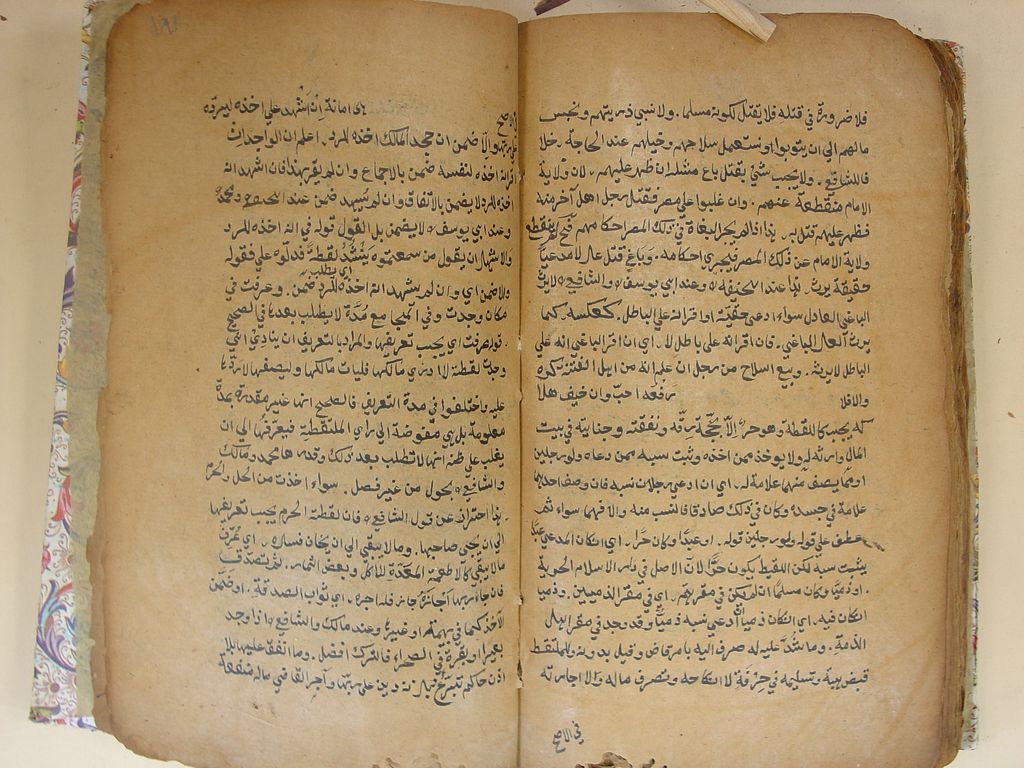 فلا ضرورة في قتله فلا يقتل لكونه مسلما . ولا نسبي ذريتهم ونحبس
مالهم الى ان يتوبوا ونستعمل سلاحهم وخيلهم عند الحاجة . خلافا
فاللشافعي . ولا يجب شئ بقتل باغ مثله ان ظهر عليهم . لان ولاية
الامام منقطعة عنهم . وان غلبوا على مصر فقتل رجل اهل آخر منه
فظهر عليهم قتل به . هذا اذا لم يجر البغاة في ذلك المصر احكامهم فح لم ينقطع
ولاية الامام عن ذلك المصر فيجري احكامه . وباغ قتل عادلا مدعيا
حقيته يرث . هذا عند ابي حنيفة وعند ابي يوسف والشافعي لا يرث
الباغي العادل سواء ادعى حقيته او اقر انه على الباطل . كعكسه . كما
يرث العادل الباغي . فان اقر انه على باطل لا . اي ان اقر الباغي انه على
الباطل لا يرثه . وبيع السلاح من رجل ان علم انه من اهل الفتنة كره
والا فلا رفعه احب وان خيف هلا
كه يجب كاللقطة وهو حر الا بحجة رقه ونفقته وجنايته في بيت
المال وارثه له ولا يؤخذ ممن اخذه وثبت نسبه ممن دعاه ولو رجلين
او ممن يصف منهما علامة له . اي ان ادعى رجلان نسبه فان وصف احدهما
علامة في جسده وكان في ذلك صادقا فالنسب منه والا فهما سواء ثم
عطف على قوله ولو رجلين قوله . او عبدا وكان حرا . اي ان كان المدعي عبدا
يثبت نسبه لكن اللقيط يكون حرا لان الاصل في دار الاسلام الحرية
. او ذميا وكان مسلما ان لم يكن في مقرهم . اي في مقر الذميين . وذميا
ان كان فيه . اي ان كان ذميا ادعى نسبه ذمي وقد وجد في مقر اهل
الذمة . وما شد عليه له صرف اليه بامر قاض وقيل بدونه وللملتقط
قبض هبته وتسليمه في حرفة لا انكاحه وتصرف ماله ولا اجارته
في الاصح
١٩١
هي امانة ان اشهد على اخذه ليرده
على ربها والا ضمن ان جحد المالك اخذه للرد . اعلم ان الواجد ان
اقر انه اخذه لنفسه ضمن بالاجماع وان لم يقر بهذا فان اشهد انه
اخذه للرد لا يضمن بالاتفاق وان لم يشهد ضمن عند ابي حنيفة ومحمد
وعند ابي يوسف لا يضمن بل القول قوله في انه اخذه للرد
والاشهاد ان يقول من سمعتموه ينشد لقطة فدلوه علي فقوله
اي يطلب
والا ضمن اي وان لم يشهد انه اخذه للرد ضمن . وعرفت في
مكان وجدت وفي المجامع مدة لا يطلب بعدها في الصحيح
. قوله عرفت اي يجب تعريفها والمراد بالتعريف ان ينادي اني
وجدت لقطة لا ادري مالكها فليات مالكها وليصفها لاردها
عليه واختلفوا في مدة التعريف فالصحيح انها غير مقدرة بمدة
معلومة بل هي مفوضة الى راي الملتقط فيعرفها الى ان
يغلب على ظنه انها لا تطلب بعد ذلك وقدرها محمد ومالك
والشافعي بحول من غير فصل . سواء اخذت من الحل والحرم
. هذا احتراز عن قول الشافعي فان لقطة الحرم يجب تعريفها
الى ان يجئ صاحبها . وما لا يبقى الى ان يخاف فساده . اي عرف
ما لا يبقى كالاطعمة المعدة للاكل وبعض الثمار . ثم تصدق
فان جاء ربها اجازه وله اجره . اي ثواب الصدقة . او ضمن
الآخذ كما في بهيمة او غيرها وعند مالك والشافعي اذا وجد
بعيرا او بقرة في الصحراء فالترك افضل . وما انفق عليها بلا
اذن حاكم تبرع وباذنه دين على ربها وآجر القاضي ماله منفعة